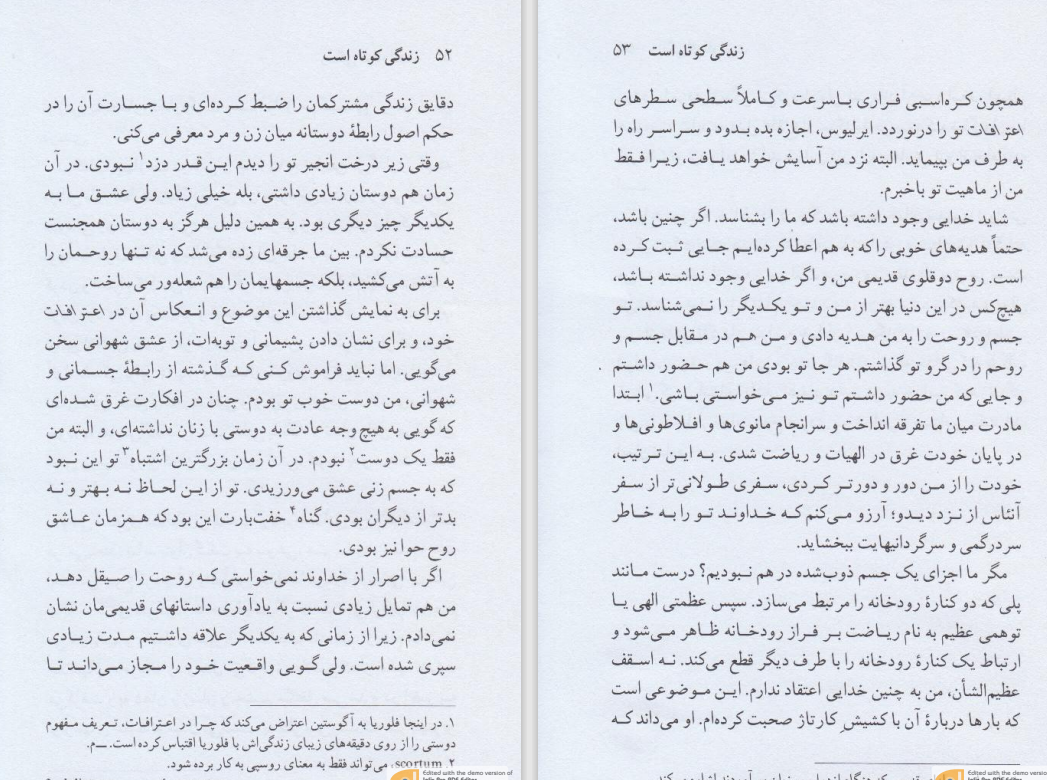 ۵۲ زندگی کوتاه است
دقایق زندگی مشترکمان را ضبط کرده‌ای و با جسارت آن را در
حکم اصول رابطهٔ دوستانه میان زن و مرد معرفی می‌کنی.
وقتی زیر درخت انجیر تو را دیدم این قدر دزد۱ نبودی. در آن
زمان هم دوستان زیادی داشتی، بله خیلی زیاد. ولی عشق ما به
یکدیگر چیز دیگری بود. به همین دلیل هرگز به دوستان همجنست
حسادت نکردم. بین ما جرقه‌ای زده می‌شد که نه تنها روحمان را
به آتش می‌کشید، بلکه جسمهایمان را هم شعله‌ور می‌ساخت.
برای به نمایش گذاشتن این موضوع و انعکاس آن در اعترافات
خود، و برای نشان دادن پشیمانی و توبه‌ات، از عشق شهوانی سخن
می‌گویی. اما نباید فراموش کنی که گذشته از رابطهٔ جسمانی و
شهوانی، من دوست خوب تو بودم. چنان در افکارت غرق شده‌ای
که گویی به هیچ وجه عادت به دوستی با زنان نداشته‌ای، و البته من
فقط یک دوست۲ نبودم. در آن زمان بزرگترین اشتباه۳ تو این نبود
که به جسم زنی عشق می‌ورزیدی. تو از این لحاظ نه بهتر و نه
بدتر از دیگران بودی. گناه۴ خفت‌بارت این بود که همزمان عاشق
روح حوا نیز بودی.
اگر با اصرار از خداوند نمی‌خواستی که روحت را صیقل دهد،
من هم تمایل زیادی نسبت به یادآوری داستانهای قدیمی‌مان نشان
نمی‌دادم. زیرا از زمانی که به یکدیگر علاقه داشتیم مدت زیادی
سپری شده است. ولی گویی واقعیت خود را مجاز می‌داند تا
۱. در اینجا فلوریا به آگوستین اعتراض می‌کند که چرا در اعترافات، تعریف مفهوم
دوستی را از روی دقیقه‌های زیبای زندگی‌اش با فلوریا اقتباس کرده است. ــم.
۲. scortum، می‌تواند فقط به معنای روسپی به کار برده شود.
Edited with the demo version of
۵۳ زندگی کوتاه است
همچون کره‌اسبی فراری باسرعت و کاملاً سطحی سطرهای
اعترافات تو را درنوردد. ایرلیوس، اجازه بده بدود و سراسر راه را
به طرف من بپیماید. البته نزد من آسایش خواهد یافت، زیرا فقط
من از ماهیت تو باخبرم.
شاید خدایی وجود داشته باشد که ما را بشناسد. اگر چنین باشد،
حتماً هدیه‌های خوبی را که به هم اعطا کرده‌ایم جایی ثبت کرده
است. روح دوقلوی قدیمی من، و اگر خدایی وجود نداشته باشد،
هیچ‌کس در این دنیا بهتر از من و تو یکدیگر را نمی‌شناسد. تو
جسم و روحت را به من هدیه دادی و من هم در مقابل جسم و
روحم را در گرو تو گذاشتم. هر جا تو بودی من هم حضور داشتم
و جایی که من حضور داشتم تو نیز می‌خواستی باشی.۱ ابتدا
مادرت میان ما تفرقه انداخت و سرانجام مانوی‌ها و افلاطونی‌ها و
در پایان خودت غرق در الهیات و ریاضت شدی. به این ترتیب،
خودت را از من دور و دورتر کردی، سفری طولانی‌تر از سفر
آنئاس از نزد دیدو؛ آرزو می‌کنم که خداوند تو را به خاطر
سردرگمی و سرگردانیهایت ببخشاید.
مگر ما اجزای یک جسم ذوب‌شده در هم نبودیم؟ درست مانند
پلی که دو کنارهٔ رودخانه را مرتبط می‌سازد. سپس عظمتی الهی یا
توهمی عظیم به نام ریاضت بر فراز رودخانه ظاهر می‌شود و
ارتباط یک کنارهٔ رودخانه را با طرف دیگر قطع می‌کند. نه اسقف
عظیم‌الشأن، من به چنین خدایی اعتقاد ندارم. این موضوعی است
که بارها دربارهٔ آن با کشیشِ کارتاژ صحبت کرده‌ام. او می‌داند که
Edited with the demo version of